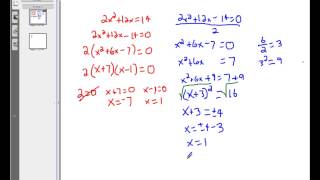 2x²+12x=14
2x²+12x-14=0
2(x²+6x-7)=0
2(x+7)(x-1)=0
2≠0 x+7=0 x-1=0
x=-7 x=1
2x²+12x-14=0
2
x²+6x-7=0
x²+6x =7
x²+6x+9=7+9
√(x+3)² = √16
x+3=±4
x=±4-3
x=1
6/2=3
3²=9